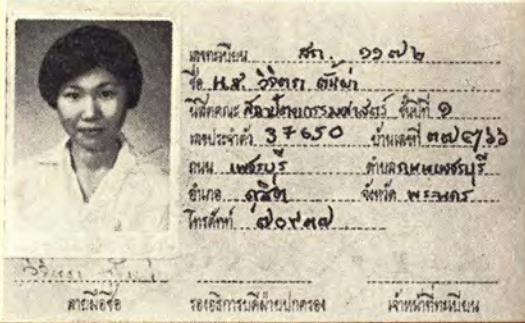 เลขทะเบียน สถ. ๑๑๗๒
ชื่อ น.ส. วิจิตรา ตันม่า
นิสิตคณะ สถาปัตยกรรมศาสตร์ ชั้นปีที่ ๑
เลขประจำตัว 37650 บ้านเลขที่
ถนน เพชรบุรี ตำบล ถนนเพชรบุรี
อำเภอ ดุสิต จังหวัด พระนคร
โทรศัพท์
ลายมือชื่อ รองอธิการบดีฝ่ายปกครอง เจ้าหน้าที่ทะเบียน